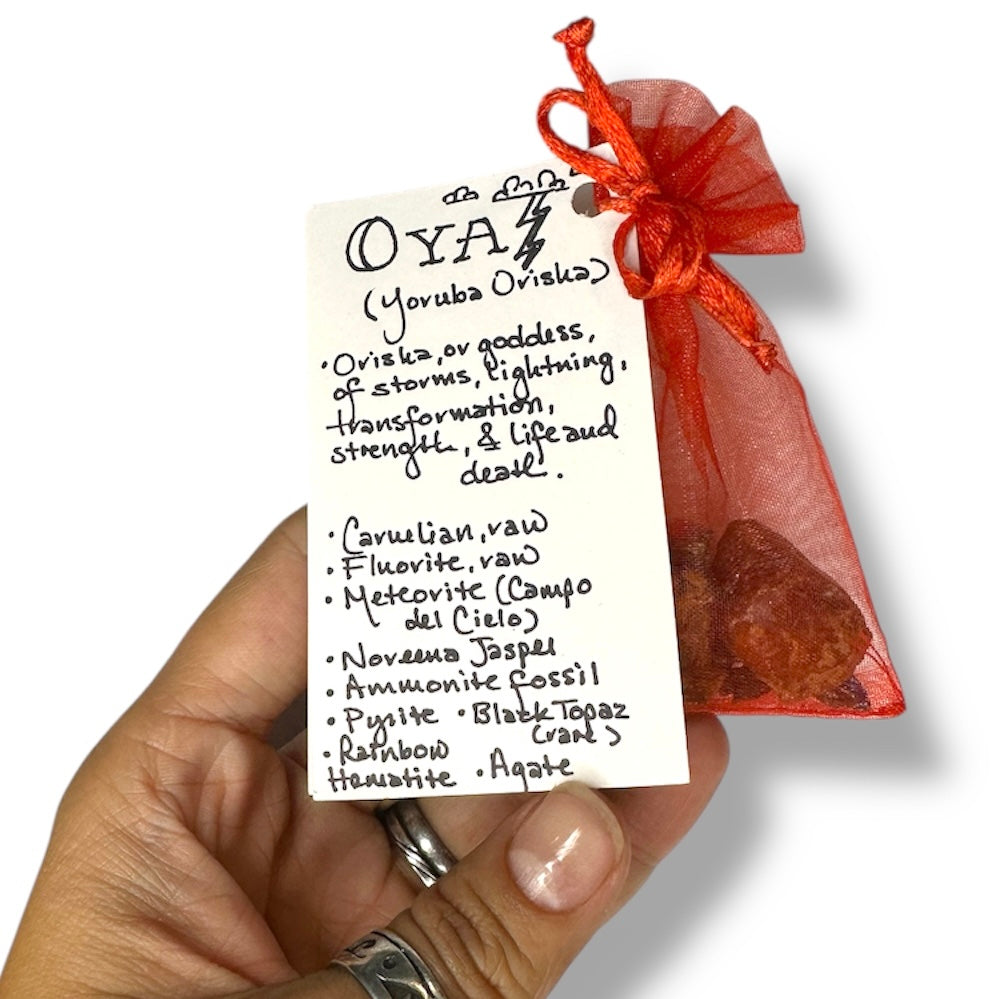 OYA
(Yoruba Oriska)
• Oriska, or goddess,
of storms, lightning,
transformation,
strength, & life and
death.
• Carnelian, raw
• Fluorite, raw
• Meteorite (Campo
del Cielo)
• Noreena Jasper
• Ammonite fossil
• Pyrite • Black Topaz
(rare)
• Rainbow
Hematite • Agate